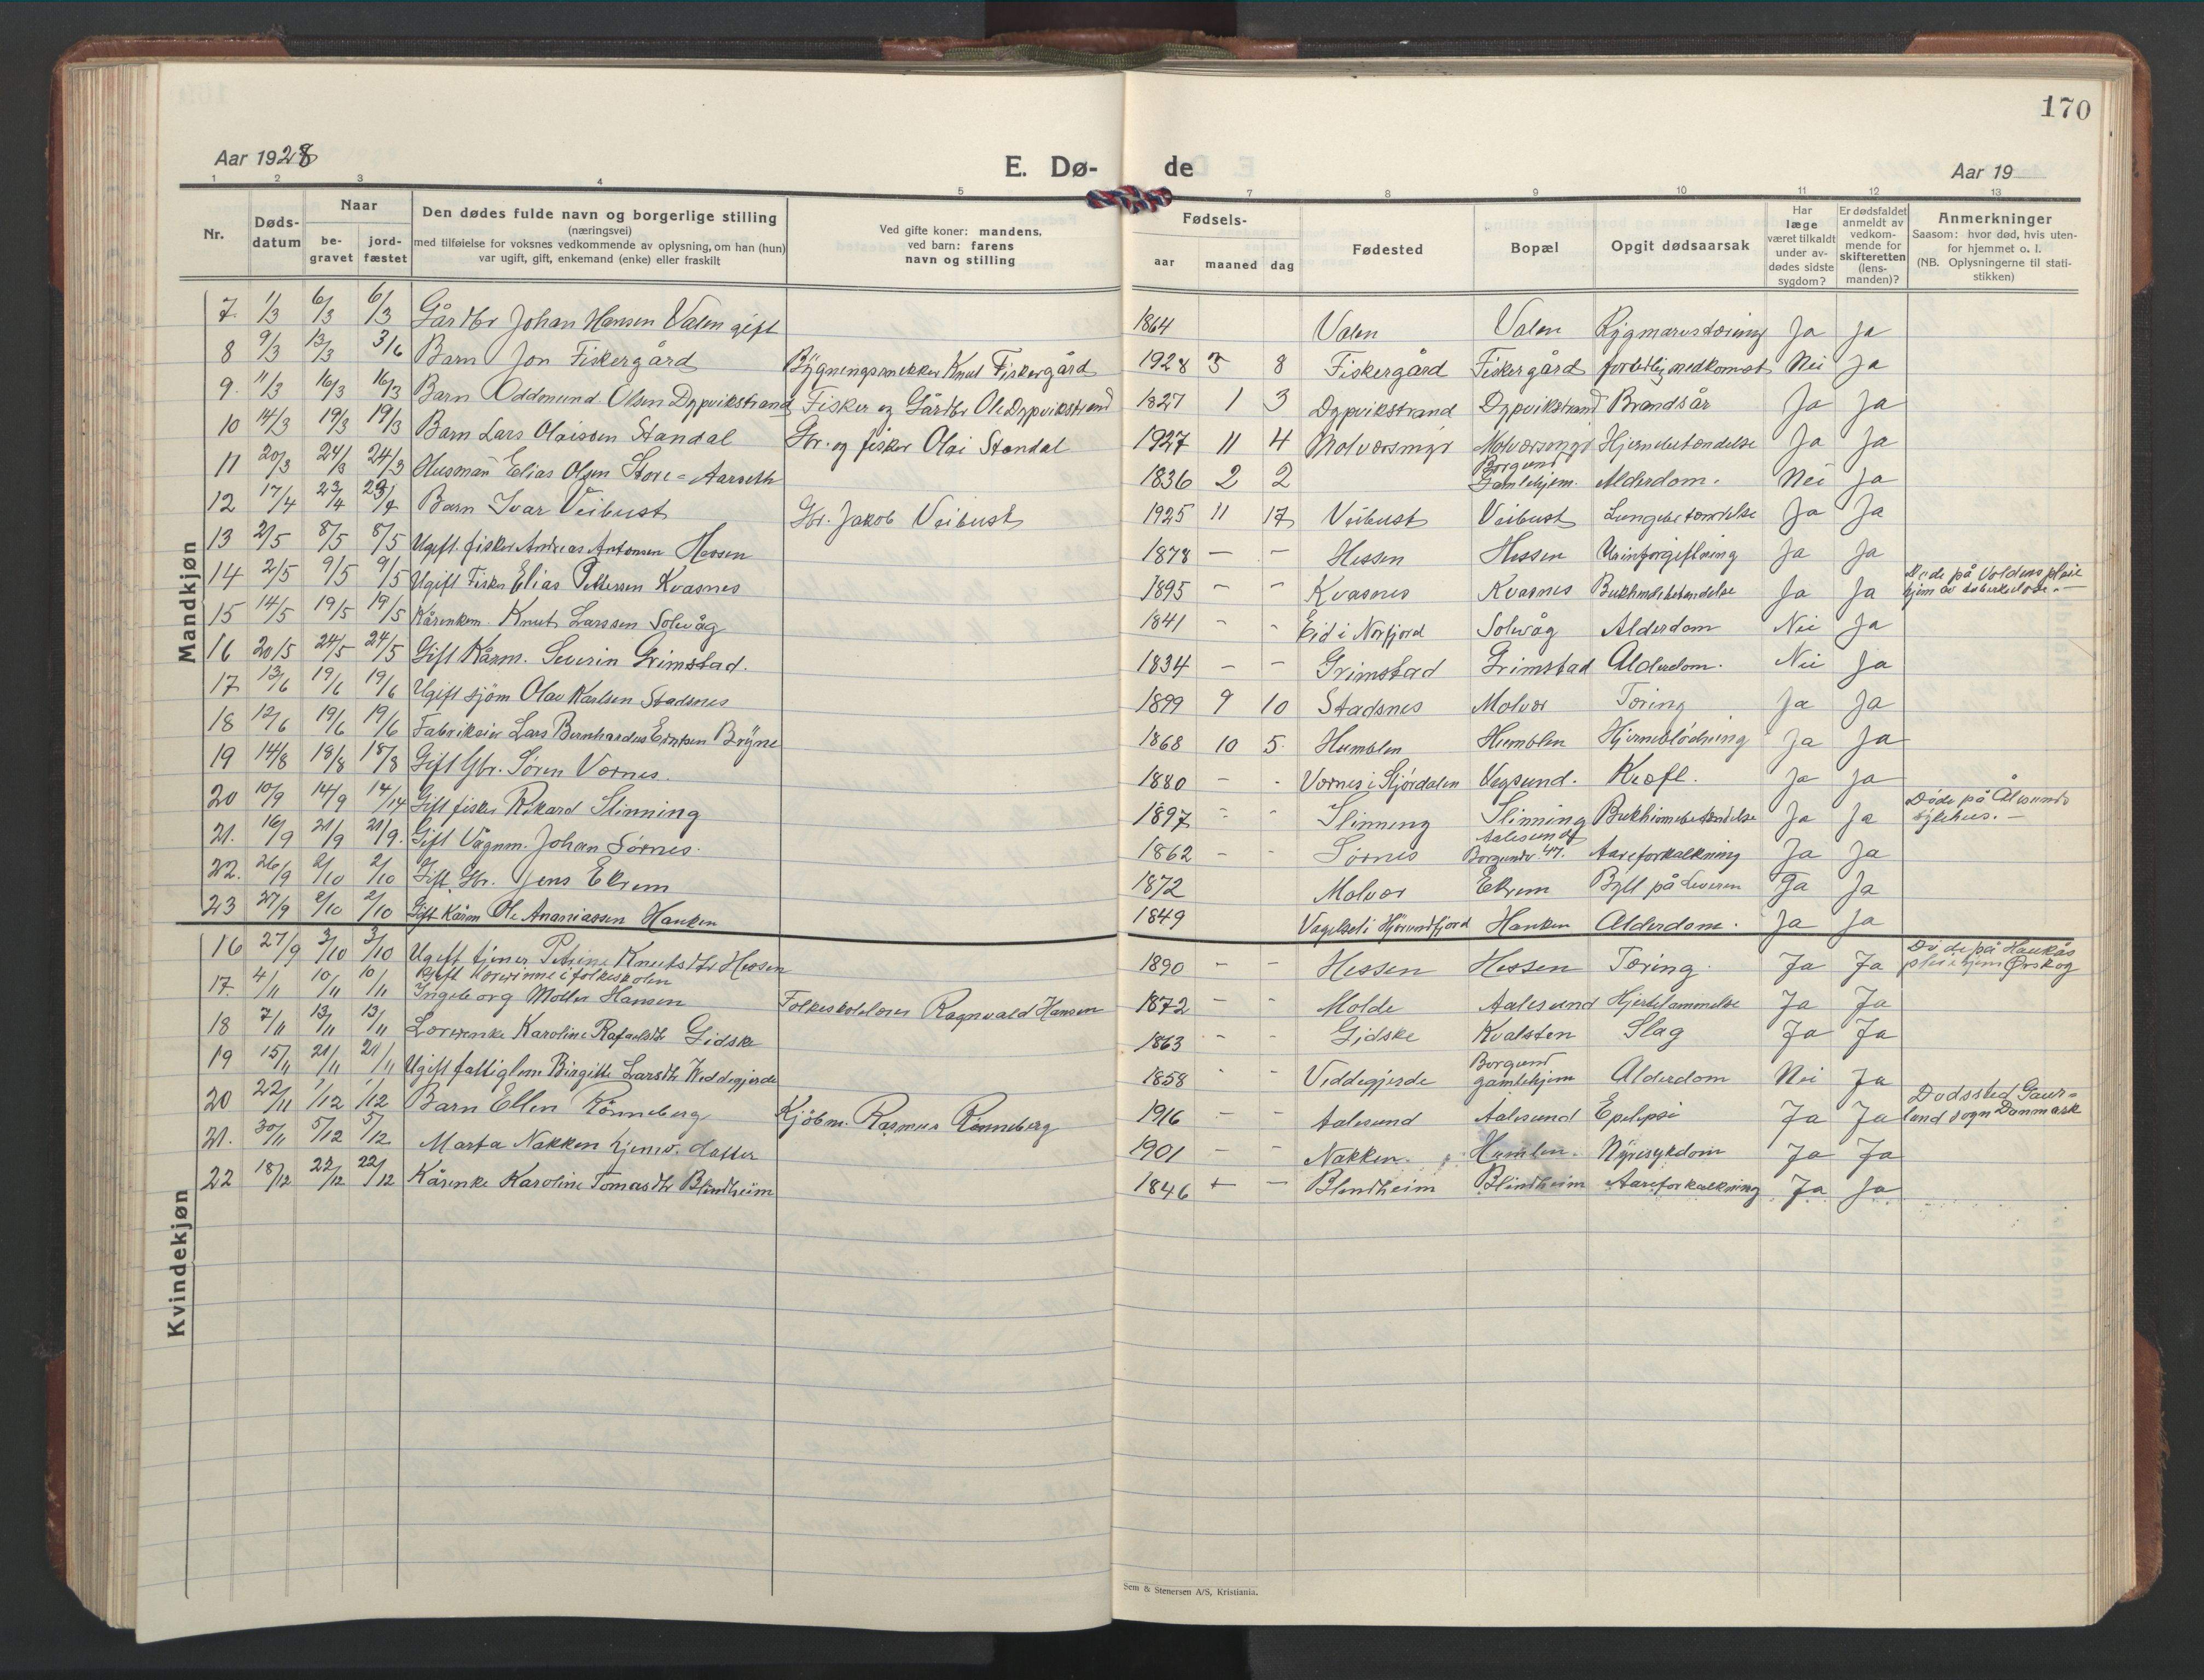 170
Aar 1928
E. Dø-
de
Aar 19
1 2 3 4 5 7 8 9 10 11 12 13
Nr.
Døds-
datum
Naar
be-
gravet
jord-
fæstet
Den dødes fulde navn og borgerlige stilling
(næringsvei)
med tilføielse for voksnes vedkommende av oplysning, om han (hun)
var ugift, gift, enkemand (enke) eller fraskilt
Ved gifte koner: mandens,
ved barn: farens
navn og stilling
Fødsels-
aar maaned dag
Fødested
Bopæl
Opgit dødsaarsak
Har
læge
været tilkaldt
under av-
dødes sidste
sygdom?
Er dødsfaldet
anmeldt av
vedkom-
mende for
skifteretten
(lens-
manden)?
Anmerkninger
Saasom: hvor død, hvis uten-
for hjemmet o. l.
(NB. Oplysningerne til stati-
stikken)
Mandkjøn
7 1/3 6/3 6/3 Gårdbr Johan Hansen Valen gift 1864 Valen Valen Rygmarvstæring Ja Ja
8 9/3 13/3 3/6 Barn Jon Fiskergård Bygningssnekker Knut Fiskergård 1928 3 8 Fiskergård Fiskergård fortidlig nedkomst Nei Ja
9. 11/3 16/3 16/3 Barn Oddmund Olsen Dypvikstrand Fisker og Gårdbr Ole Dypvikstrand 1827 1 3 Dypvikstrand Dypvikstrand Brandsår Ja Ja
10 14/3 19/3 19/3 Barn Lars Olaissen Standal Gbr. og fisker Olai Standal 1927 11 4 Molværsmyr Molværsmyr Hjernebetændelse Ja Ja
11 20/3 24/3 24/3 Husman Elias Olsen Store-Aarseth 1836 2 2 Borgund Gamlehjem. Alderdom. Nei Ja
12 17/4 23/4 23/4 Barn Ivar Veibust Gbr. Jakob Veibust 1925 11 17 Veibust Veibust Lungebetændelse Ja Ja
13 2/5 8/5 8/5 Ugift. fisker Andreas Antonsen Hessen 1878 — — Hessen Hessen Urinforgiftning Ja Ja
14 2/5 9/5 9/5 Ugift Fisker Elias Pettersen Kvasnes 1895 - - Kvasnes Kvasnes Bukhindebetændelse Ja Ja Døde på Voldens pleie
hjem av tuberkulose.—
15 14/5 19/5 19/5 Kårenkem. Knut Larssen Solevåg 1841 - - Eid i Norfjord Solevåg Alderdom Nei Ja
16 20/5 24/5 24/5 Gift Kårm. Severin Grimstad. 1834 — — Grimstad Grimstad Alderdom. Nei Ja
17 13/6 19/6 19/6 Ugift sjöm Olav Karlsen Stadsnes 1899 9 10 Stadsnes Molvær Tæring Ja Ja
18 12/6 19/6 19/6 Fabrikeier Lars Bernhardus Bryne 1868 10 5. Humblen Humblen Hjerneblödning Ja Ja
19 14/8 18/8 18/8 Gift Gbr. Sören Vornes. 1880 - - Vornes i Stjördalen Vegsund. Kræft. Ja Ja
20 10/9 14/9 14/14 Gift fisker Rikard Slinning 1897 - - Slinning Slinning Bukhinnebetændelse Ja Ja Døde på Ålesunds
sykehus.—
21. 16/9 21/9 21/9. Gift Vågnm. Johan Sørnes. 1862 - - Sørnes Aalesund Borgundv. 47. Aareforkalkning Ja Ja
22. 26/9 2/10 2/10 Gift Gbr. Jens Ekrem 1872 Molvær Ekrem Byll på Leveren Ja Ja
23 27/9 2/10 2/10 Gift Kårm Ole Ananiassen Hanken 1849 Hjörundfjord Hanken Alderdom. Ja Ja
Kvindekjøn
16 27/9 3/10 3/10 Ugift tjener Petrine Knutsdtr Hessen 1890 — - Hessen Hessen Tæring. Ja Ja Døde på Haukås
pleiehjem Ørskog
17. 4/11 10/11 10/11 Gift lærerinne i folkeskolen
Ingeborg Møller Hansen Folkeskolelærer Ragnvald Hansen 1872 - - Molde Aalesund Hjertelammelse Ja Ja
18 7/11 13/11 13/11 Karoline Rafaelsdtr Gidske 1863 - - Gidske Kvalsten Slag Ja Ja
19 15/11 21/11 21/11 Ugift fattiglem Birgitte Larsdtr Weddegjerde 1858 - - Veddegjerde Borgund gamlehjem Alderdom Nei Ja
20 22/11 1/12 1/12 Barn Ellen Rönneberg Kjöbm. Rasmus Rønneberg 1916 — — Aalesund Aalesund Epelepsi Ja Ja Dødssted Gaur=
lund sogn Danmark
21. 30/11 5/12 5/12 Marta Nakken hjemv. datter 1901 — — Nakken. Humlen. Nyresykdom Ja Ja
22 18/12 22/12 22/12 Kårenke Karoline Tomasdtr Blindheim 1846 + — Blindheim Blindheim Aareforkalkning Ja Ja
Sem & Stenersen A/S, Kristiania.